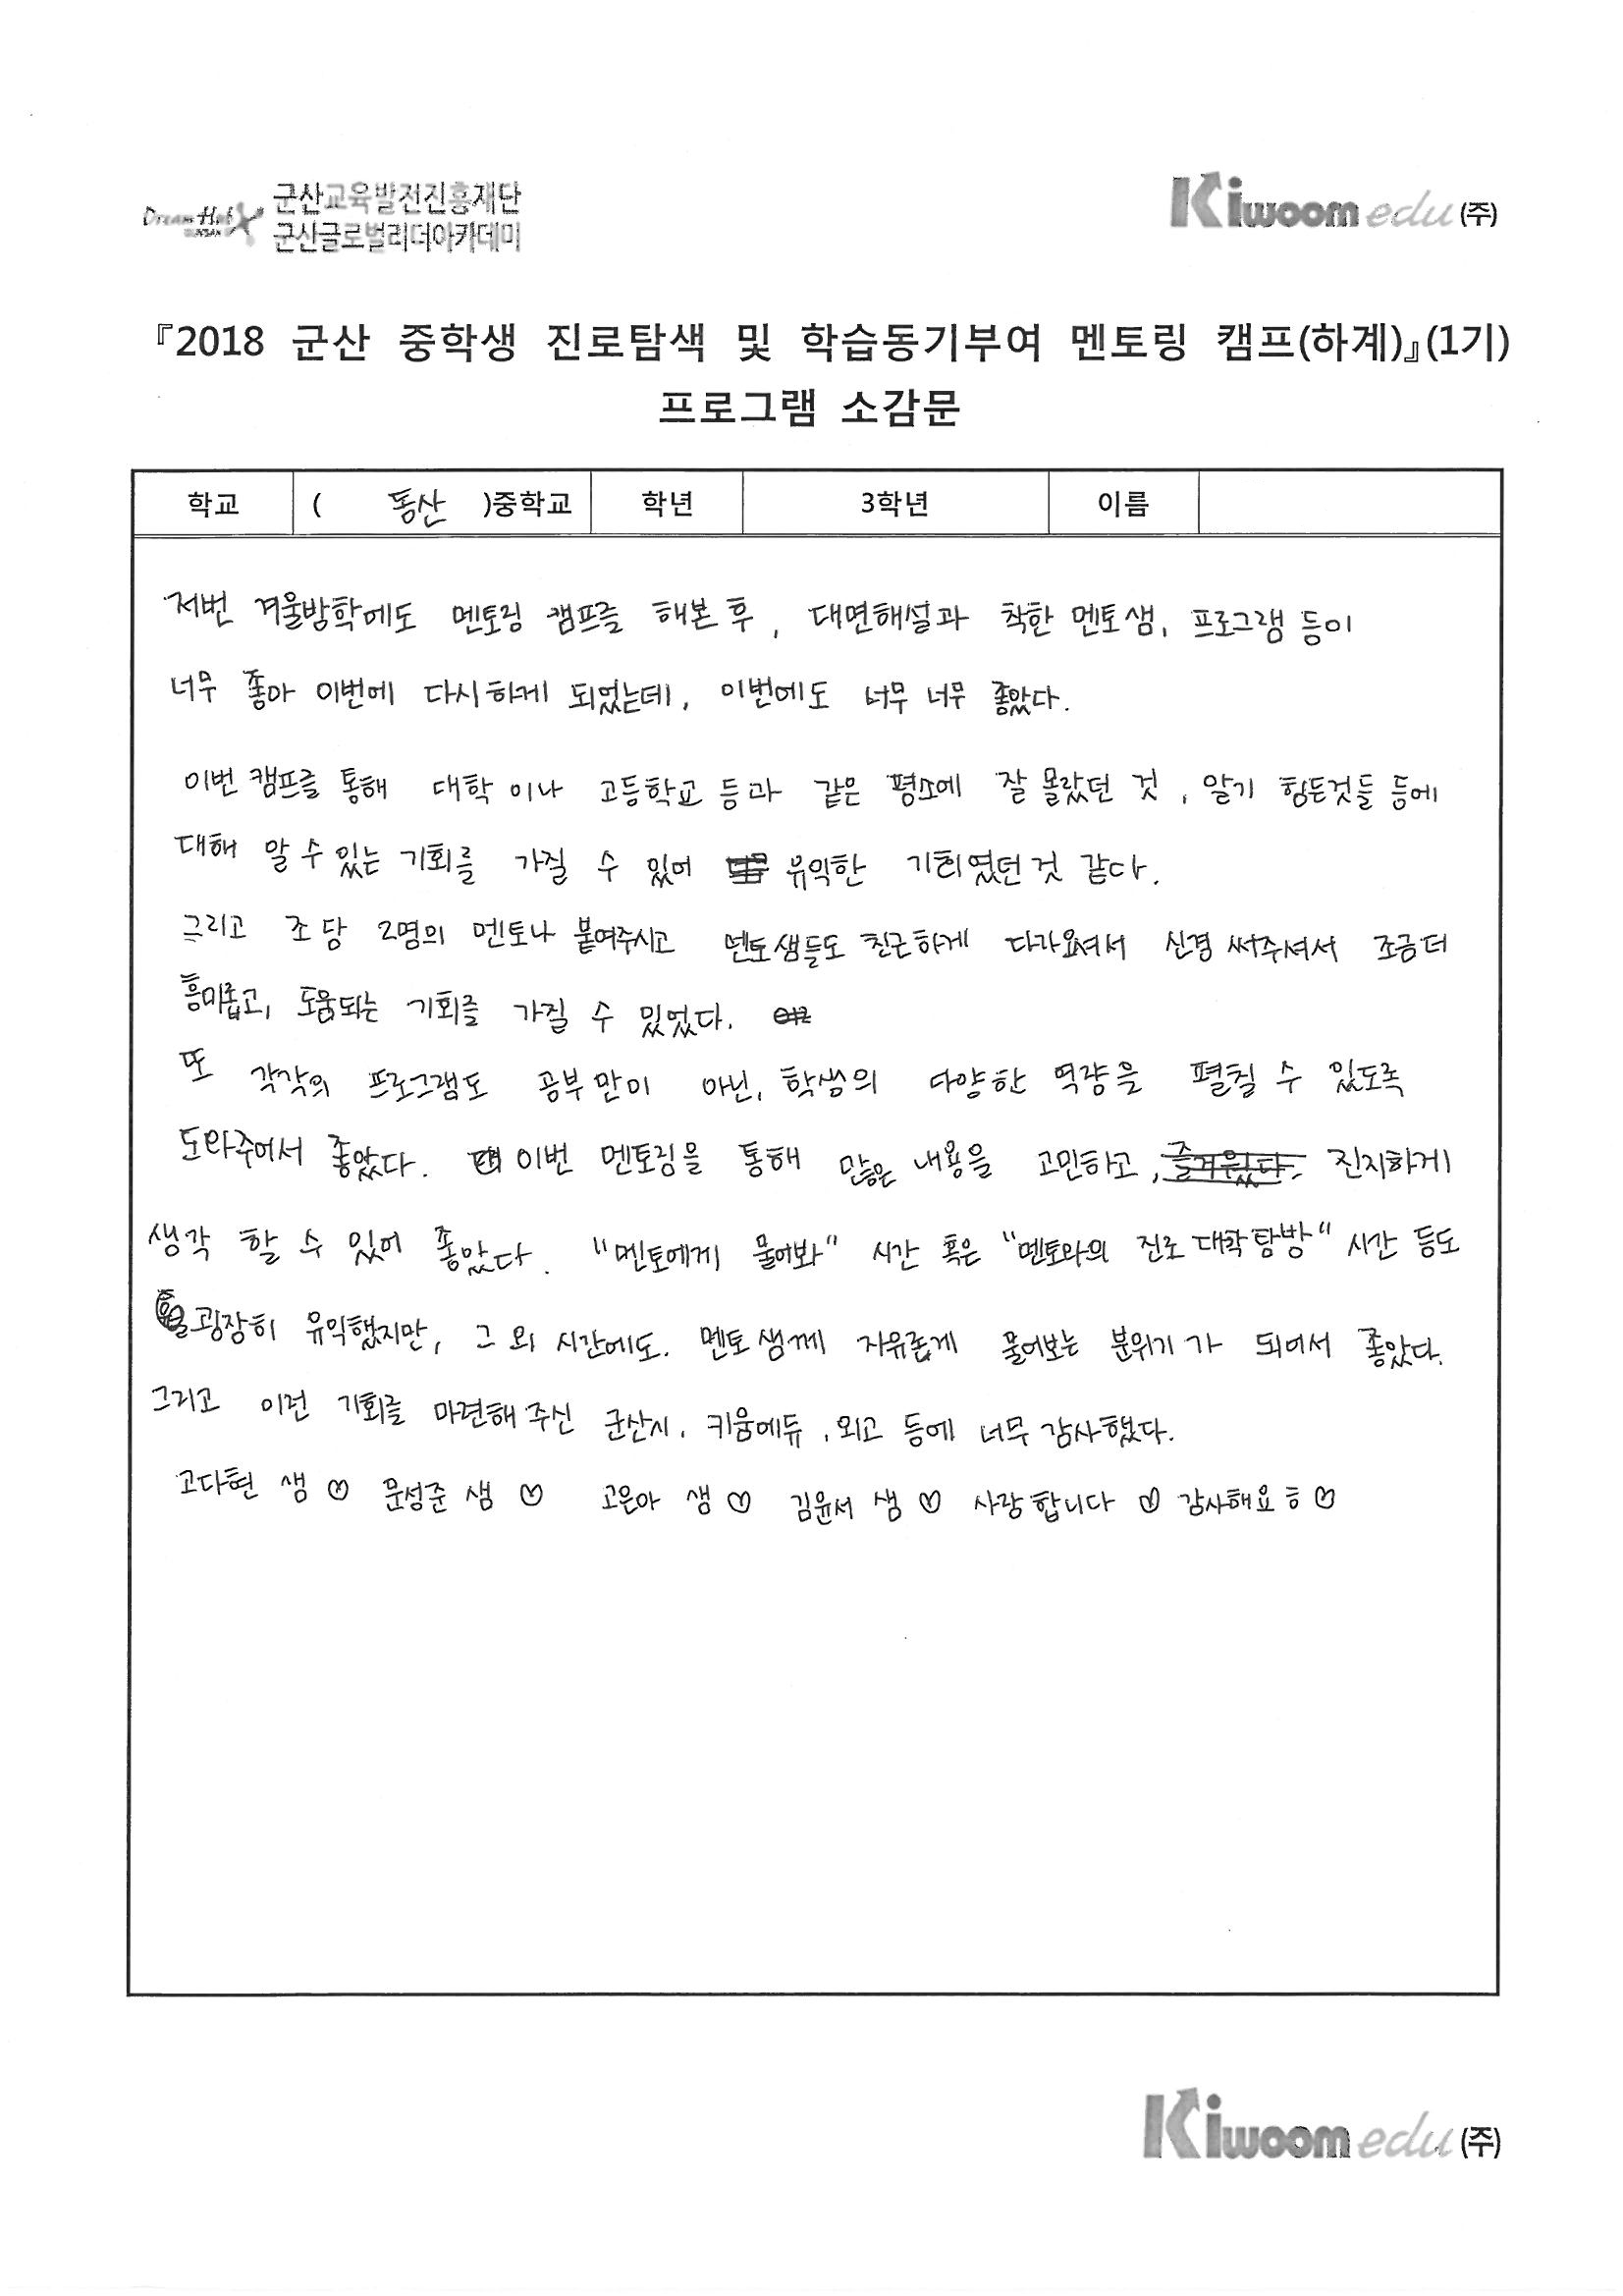 Dream Hub 군산교육발전진흥재단
GUNSAN 군산글로벌리더아카데미
Kiwoom edu (주)
『2018 군산 중학생 진로탐색 및 학습동기부여 멘토링 캠프(하계)』(1기)
프로그램 소감문
학교 ( 동산 )중학교 학년 3학년 이름
저번 겨울방학에도 멘토링 캠프를 해본 후, 대면해설과 착한 멘토샘, 프로그램 등이
너무 좋아 이번에 다시하게 되었는데, 이번에도 너무 너무 좋았다.
이번 캠프를 통해 대학이나 고등학교 등과 같은 평소에 잘 몰랐던 것, 알기 힘든것들 등에
대해 알 수 있는 기회를 가질 수 있어 유익한 기회였던것 같다.
그리고 조당 2명의 멘토나 붙여주시고 멘토샘들도 친근하게 다가오셔서 신경써주셔서 조금더
흥미롭고, 도움되는 기회를 가질 수 있었다.
또 각각의 프로그램도 공부만이 아닌, 학생의 다양한 역량을 펼칠 수 있도록
도와주어서 좋았다. 이번 멘토링을 통해 많은 내용을 고민하고, 즐거웠다. 진지하게
생각 할 수 있어 좋았다. "멘토에게 물어봐" 시간 혹은 "멘토와의 진로대학탐방" 시간 등도
굉장히 유익했지만, 그 외 시간에도. 멘토샘께 자유롭게 물어보는 분위기가 되어서 좋았다.
그리고 이런 기회를 마련해주신 군산시, 키움에듀, 외고 등에 너무 감사했다.
고다현 샘♡ 문성준 샘♡ 고은아 샘♡ 김윤서 샘♡ 사랑합니다♡ 감사해요ㅎ♡
Kiwoom edu (주)